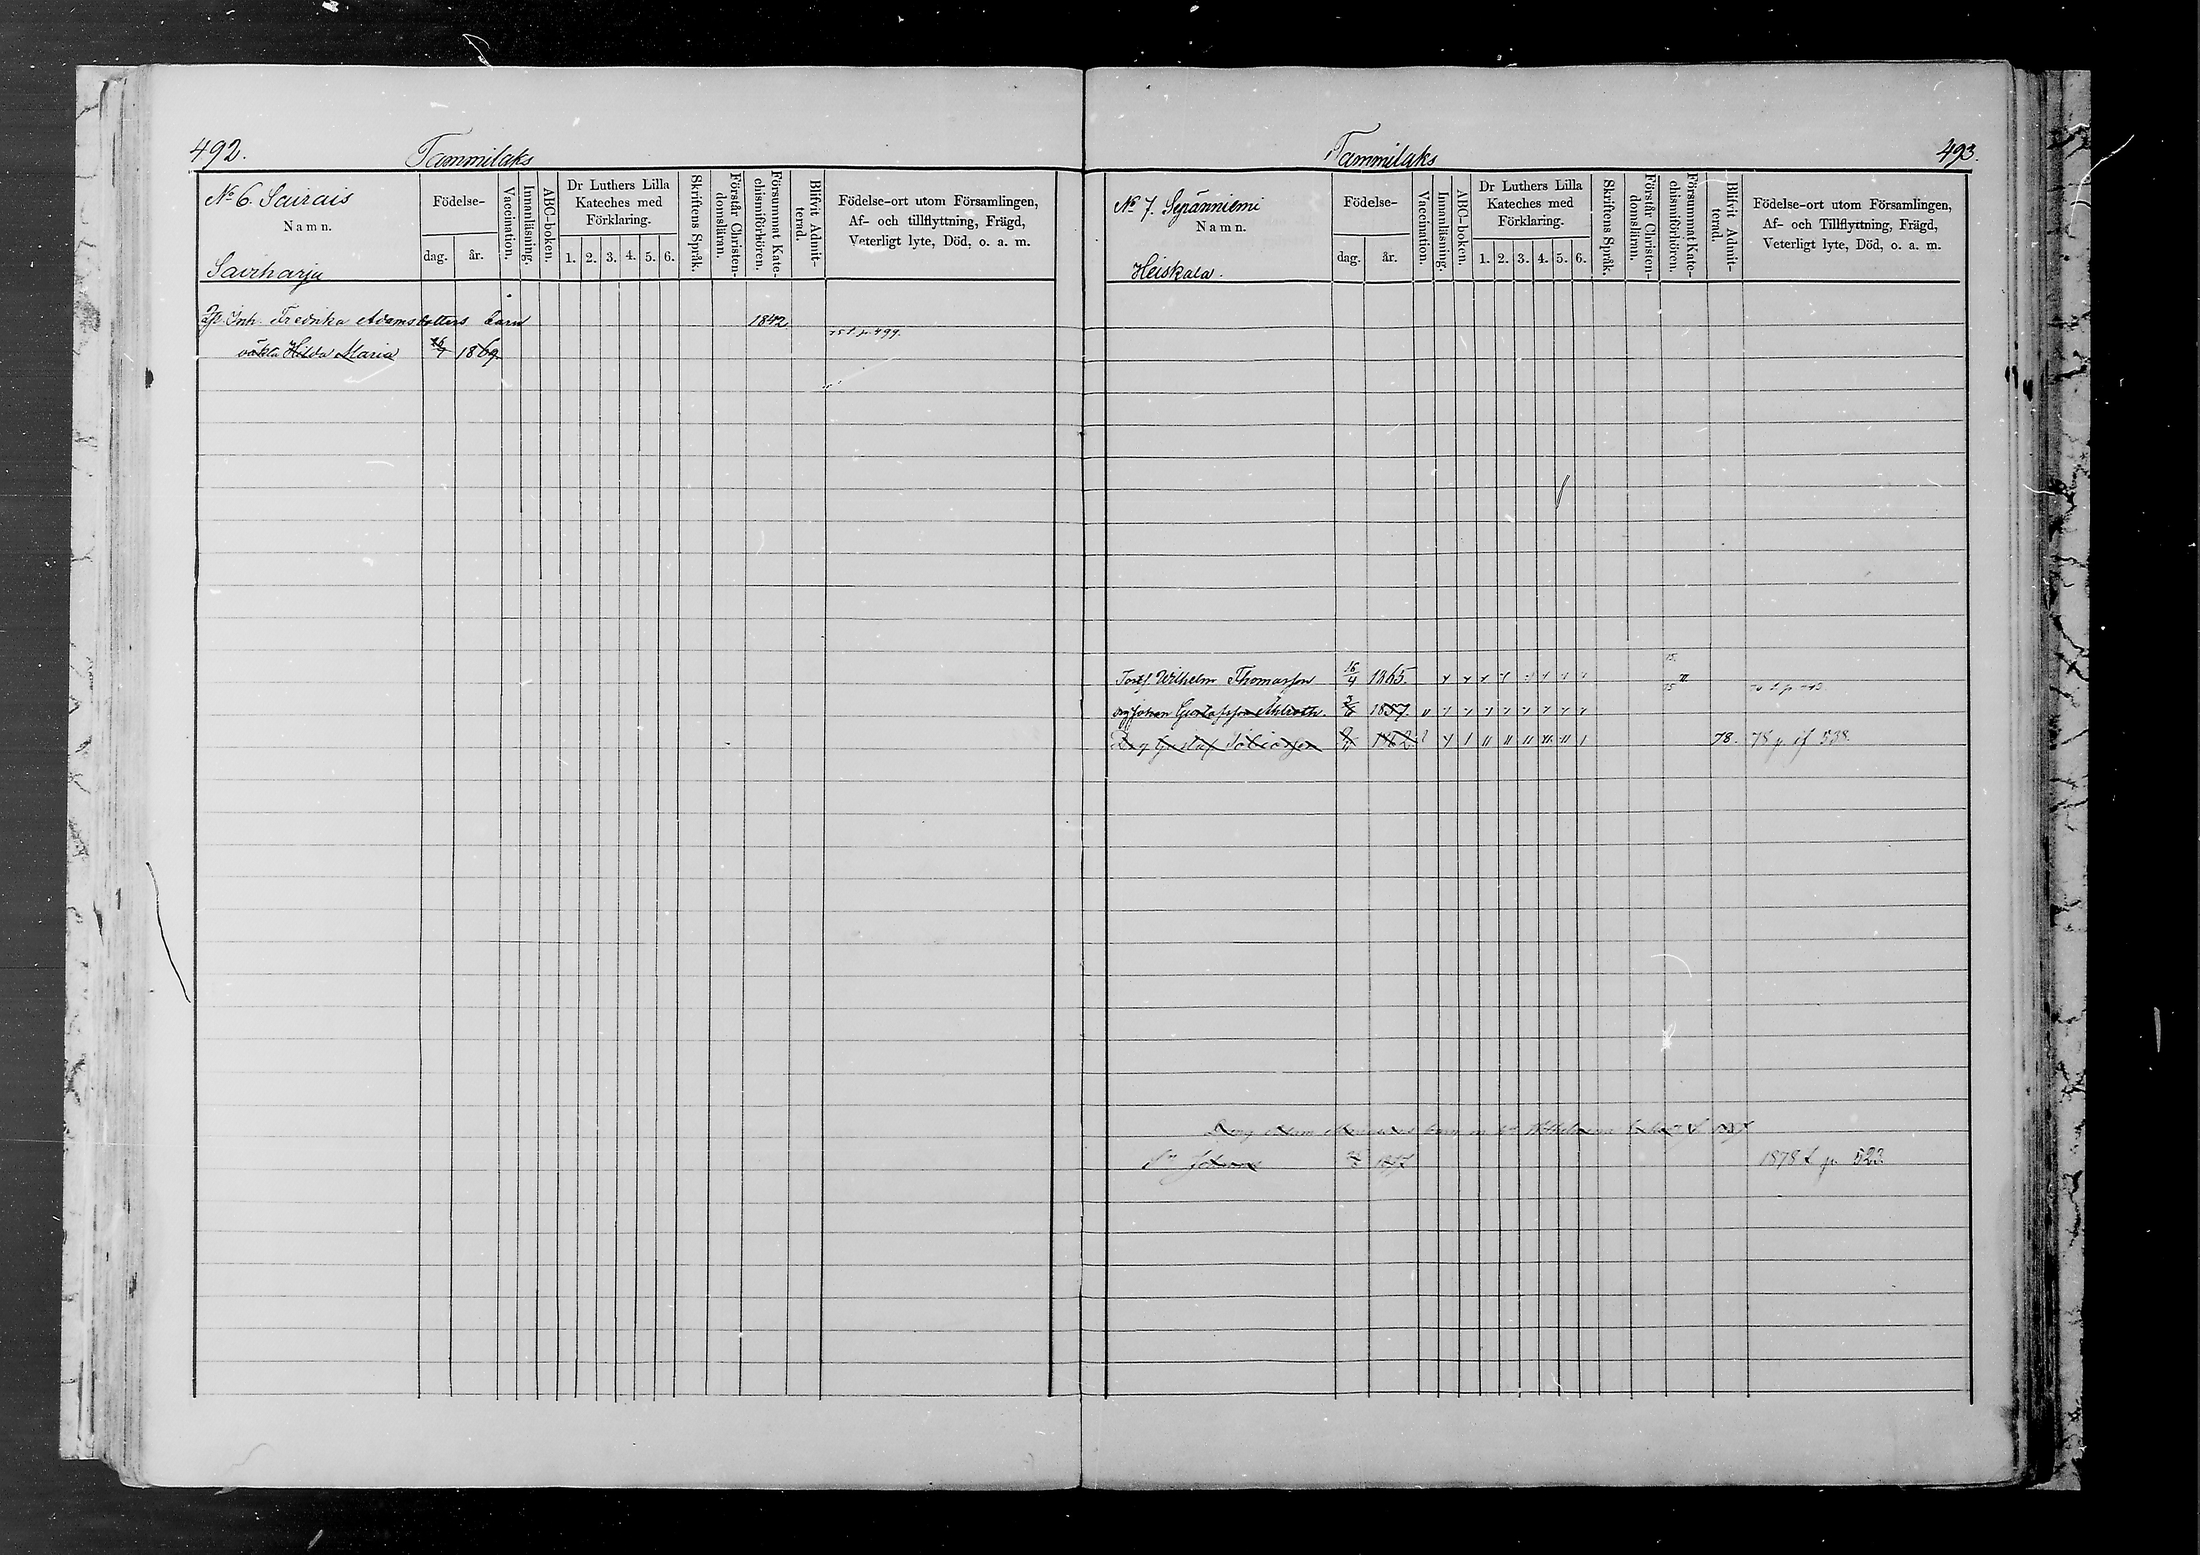 492.
Tammilaks
No 6. Sairais
Namn.
Sairharju
Födelse-
dag.
år.
Vaccination.
Innanläsning.
ABC-boken.
Dr Luthers Lilla
Kateches med
Förklaring.
1. 2. 3. 4. 5. 6.
Skriftens Språk.
Förstår Christen-
domsläran.
Försummat Kate-
chismiförhören.
Blifvit Admit-
terad.
Födelse-ort utom Församlingen,
Af- och tillflyttning, Frägd,
Veterligt lyte, Död, o. a. m.
Inh. Fredrika Adamsdotters barn 1842
oäkta Hilda Maria 1869. 75 t. p. 499.
Tammilaks
493.
No 7. Sepänniemi
Namn.
Heiskala.
Födelse-
dag.
år.
Vaccination.
Innanläsning.
ABC-boken.
Dr Luthers Lilla
Kateches med
Förklaring.
1. 2. 3. 4. 5. 6.
Skriftens Språk.
Förstår Christen-
domsläran.
Försummat Kate-
chismiförhören.
Blifvit Admit-
terad.
Födelse-ort utom Församlingen,
Af- och Tillflyttning, Frägd,
Veterligt lyte, Död, o. a. m.
Josef Wilhelm Thomasson 16/4 1865.
Johan Gustafsson Ahlroth. 1857.
Drg Gustaf 1862 78. 78 p. 538
Drng Adam
1878 t p 523